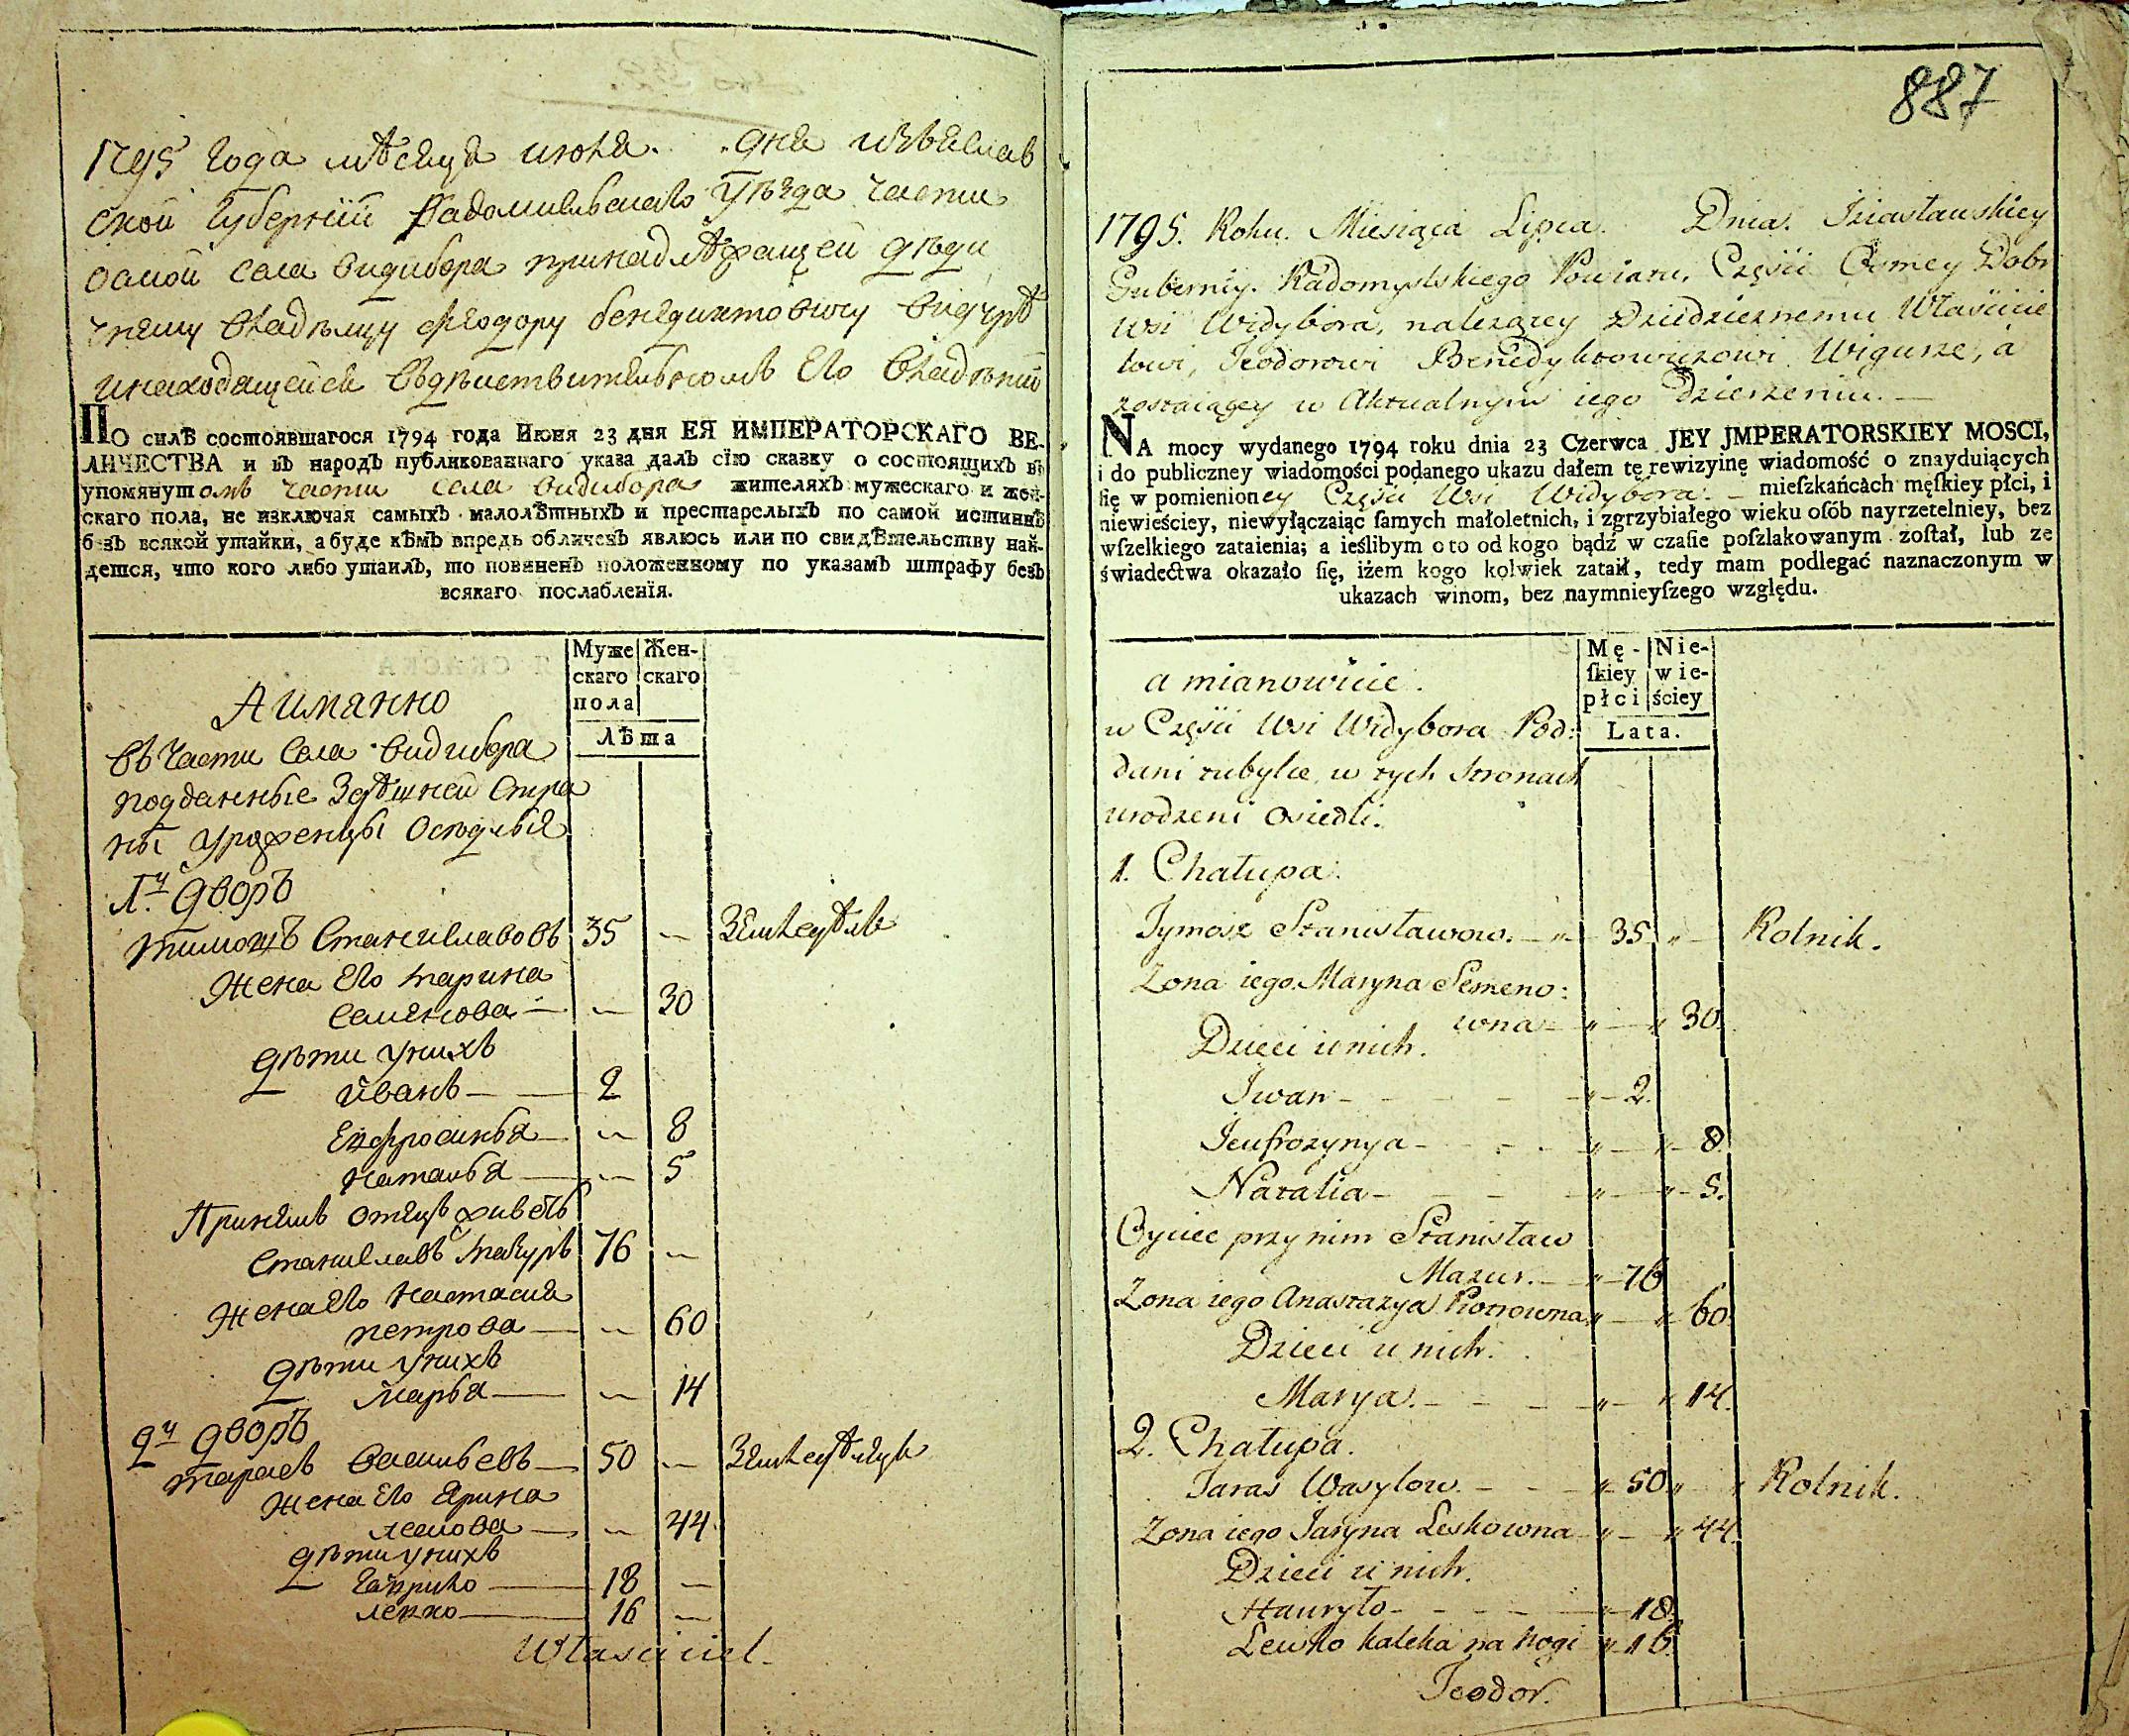 1795 года мѣсяца июля. дня изъяслав
ской губернїи радомисльскаго уѣзда части
самой села видибора принадлѣжащей дѣди
чнему владѣлцу феодору бенедиктовичу вигурѣ
инаходящейся въдѣиствителномъ его владѣнїи
ПО силѣ состоявшагося 1794 года Июня 23 дня ЕЯ ИМПЕРАТОРСКАГО ВЕ-
ЛИЧЕСТВА и въ народъ публикованнаго указа далъ сїю сказку о состоящихъ въ
упомянутомъ части села видибора жителяхъ мужескаго и жен-
скаго пола, не изключая самыхъ малолѣтныхъ и престарелыхъ по самой истиннѣ
безъ всякой утайки, а буде кѣмъ впредь обличенъ явлюсь или по свидѣтельству най-
дется, что кого либо утаилъ, то повиненъ положенному по указамъ штрафу безъ
всякаго послабленїя.
Муже
скаго
пола
Жен-
скаго
лѣта
Аимянно
Въчасти села видибора
подданные здѣшней стра
ны уроженцы оседлыя
1.й дворъ
тимошъ Станиславовъ 35 — земледѣлъ
жена его марина
семенова — — 30
дѣти унихъ
иванъ — 2
ефросинья — — 8
наталья — — 5
Принемъ отецъ живетъ
станиславъ мазуръ 76 —
жена его настасия
петрова — — 60
дѣти унихъ
марья — — 14
2й дворъ
тарасъ васильевъ — 50 — земледѣлецъ
жена его ярина
лескова — — 44
дѣти унихъ
гаврило — 18 —
левко — 16 —
Właściciel
887
1795. Roku. Miesiąca Lipca. Dnia. Iziasławskiey
Guberniy. Radomyślskiego Powiatu, Części Osmey Dobr
Wsi Widybora, nalezącey Dziedzicznemu Właścicie
lowi, Teodorowi Benedyktowiczowi Wigurze, a
zostaiącey w Aktualnym iego Dzierzeniu. —
NA mocy wydanego 1794 roku dnia 23 Czerwca JEY JMPERATORSKIEY MOSCI,
i do publiczney wiadomości podanego ukazu dałem tę rewizyinę wiadomość o znayduiących
ſię w pomienioney Części Wsi Widybora. — mieſzkańcach męſkiey płci, i
niewieściey, niewyłączaiąc ſamych małoletnich, i zgrzybiałego wieku oſób nayrzetelniey, bez
wſzelkiego zataienia; a ieślibym o to od kogo bądź w czaſie poſzlakowanym zoſtał, lub ze
świadectwa okazało ſię, iżem kogo kolwiek zataił, tedy mam podlegać naznaczonym w
ukazach winom, bez naymnieyſzego względu.
Mę-
ſkiey
płci
Nie-
wie-
ściey
Lata.
a mianowicie.
w Części Wsi Widybora Pod:
dani tubylce, w tych stronach
urodzeni osiedli.
1. Chałupa.
Tymosz Stanisławow. — 35 — Rolnik.
Zona iego Maryna Semeno:
wna — 30.
Dzieci u nich.
Iwan — 2.
Jeufrozynya — 8.
Natalia — 5.
Oyciec przy nim Stanisław
Mazur. — 76
Zona iego Anastazya Piotrowna — 60.
Dzieci u nich.
Marya. — 14.
2. Chałupa.
Taras Wasylow. — 50. Rolnik.
Zona iego Jaryna Leskowna — 44.
Dzieci u nich.
Hauryło — 18.
Lewko kaleka na nogi 16.
Teodor.